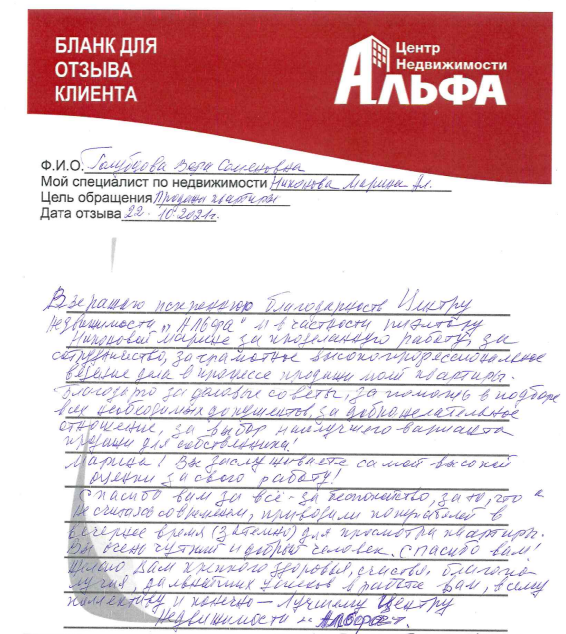 БЛАНК ДЛЯ
ОТЗЫВА
КЛИЕНТА
Центр
Недвижимости
АЛЬФА
Ф.И.О. Вера Семеновна
Мой специалист по недвижимости Никонова Марина Ал.
Цель обращения Продажа квартиры
Дата отзыва 22. 10. 2021г.
Выражаю искреннюю благодарность Центру
Недвижимости „Альфа" и в частности риэлтору
Никоновой Марине за проделанную работу, за
сотрудничество, за грамотное высокопрофессиональное
ведение дела в процессе продажи моей квартиры.
Благодарю за деловые советы, за помощь в подборе
всех необходимых документов, за доброжелательное
отношение, за выбор наилучшего варианта
продажи для собственника!
Марина! Вы заслуживаете самой высокой
оценки за свою работу!
Спасибо вам за всё - за беспокойство, за то, что
не считаясь со временем, приводили покупателей в
вечернее время (затемно) для просмотра квартиры.
Вы очень чуткий и добрый человек. Спасибо вам!
Желаю Вам крепкого здоровья, счастья, благопо-
лучия, дальнейших успехов в работе Вам, всему
коллективу и конечно - Лучшему Центру
Недвижимости